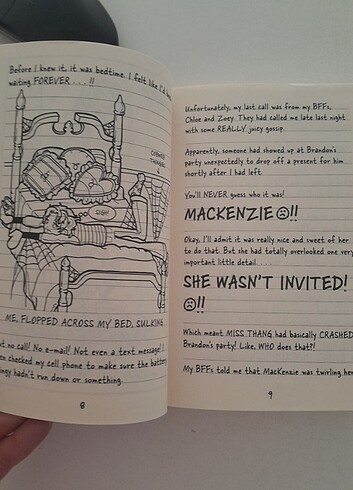 Before I knew it, it was bedtime. I felt like I'd been
waiting FOREVER . . . !!
COBWEBS
SIGH!
ME, FLOPPED ACROSS MY BED, SULKING
no call! No e-mail! Not even a text message! I
checked my cell phone to make sure the battery
thingy hadn't run down or something.
8
Unfortunately, my last call was from my BFFs,
Chloe and Zoey. They had called me late last night
with some REALLY juicy gossip.
Apparently, someone had showed up at Brandon's
party unexpectedly to drop off a present for him
shortly after I had left.
You'll NEVER guess who it was!
MACKENZIE☹!!
Okay, I'll admit it was really nice and sweet of her
to do that. But she had totally overlooked one very
important little detail . . .
SHE WASN'T INVITED!
☹!!
Which meant MISS THANG had basically CRASHED
Brandon's party! Like, WHO does that?!
My BFFs told me that MacKenzie was twirling her
9